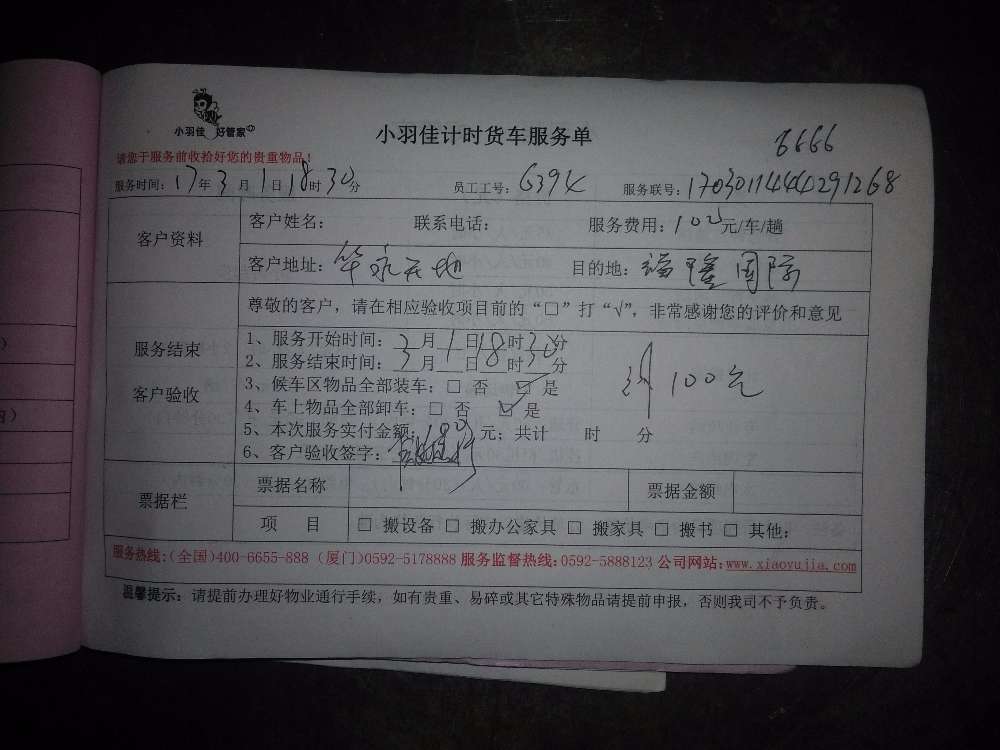 小羽佳 好管家
小羽佳计时货车服务单
6666
请您于服务前收拾好您的贵重物品！
服务时间：17年3月1日18时30分 员工工号：6394 服务联号：17030114440291268
客户资料
客户姓名： 联系电话： 服务费用：100元/车/趟
客户地址：华永天地 目的地：福隆国际
尊敬的客户，请在相应验收项目前的“□”打“√”，非常感谢您的评价和意见
服务结束
客户验收
1、服务开始时间：3月1日18时30分
2、服务结束时间：3月 日18时30分
3、候车区物品全部装车：□ 否 ☑是
4、车上物品全部卸车：□ 否 ☑是
5、本次服务实付金额：100元；共计 时 分
6、客户验收签字：
100元
票据栏
票据名称 票据金额
项 目 □ 搬设备 □ 搬办公家具 □ 搬家具 □ 搬书 □ 其他：
服务热线：(全国)400-6655-888 (厦门)0592-5178888 服务监督热线：0592-5888123 公司网站：www.xiaoyujia.com
温馨提示：请提前办理好物业通行手续，如有贵重、易碎或其它特殊物品请提前申报，否则我司不予负责。